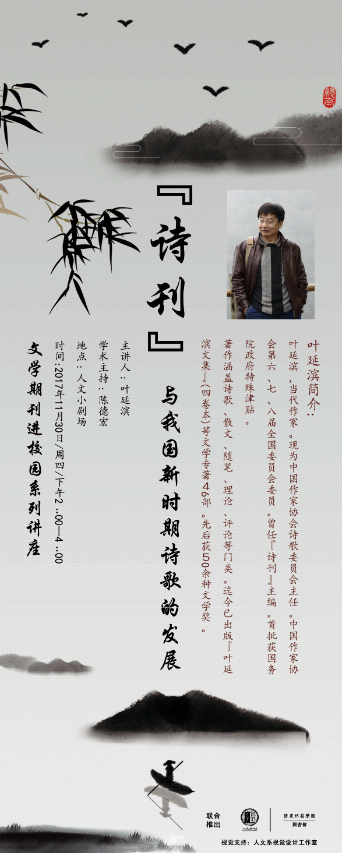 『诗刊』
与我国新时期诗歌的发展
主讲人:叶延滨
学术主持:陈德宏
地点:人文小剧场
时间:2017年11月30日/周四/下午2:00—4:00
文学期刊进校园系列讲座
叶延滨简介:
叶延滨,当代作家。现为中国作家协会诗歌委员会主任,中国作家协
会第六、七、八届全国委员会委员。曾任『诗刊』主编。首批获国务
院政府特殊津贴。
著作涵盖诗歌、散文、随笔、理论、评论等门类。迄今已出版『叶延
滨文集』(四卷本)等文学专著46部。先后获50余种文学奖。
联合
推出
图书馆
视觉支持:人文系视觉设计工作室